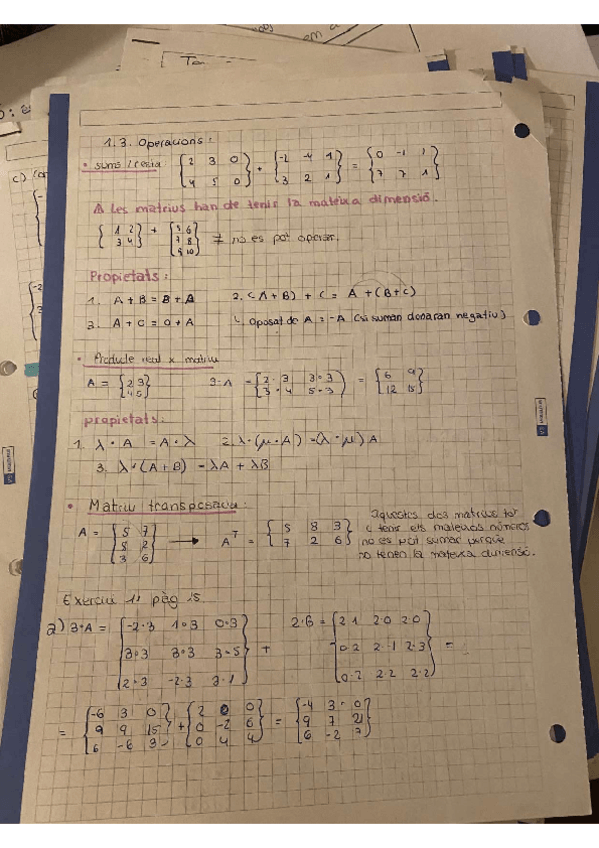 1.3. Operacions:
• suma i resta: {2 3 0 / 4 5 0} + {-2 -4 1 / 3 2 1} = {0 -1 1 / 7 7 1}
⚠ Les matrius han de tenir la mateixa dimensió.
{1 2 / 3 4} + {5 6 / 7 8 / 9 10} ≠ no es pot operar.
Propietats:
1. A + B = B + A 2. (A + B) + C = A + (B + C)
3. A + C = O + A 4. Oposat de A = -A (si suman donaran negatiu)
• Producte real x matriu
A = {2 3 / 4 5} 3·A = {2·3 3·3 / 3·4 5·3} = {6 9 / 12 15}
propietats:
1. λ · A = A · λ 2. λ · (μ · A) = (λ · μ) A
3. λ · (A + B) = λA + λB
• Matriu transposada:
A = {5 7 / 8 2 / 3 6} → Aᵀ = {5 8 3 / 7 2 6}
aquestes dos matrius tot
i tenir els mateixos números
no es pot sumar perquè
no tenen la mateixa dimensió.
Exercici 11 pàg 15
a) 3·A = {-2·3 1·3 0·3 / 3·3 3·3 3·5 / 2·3 -2·3 3·1} + 2·B = {2·1 2·0 2·0 / 0·2 2·-1 2·3 / 0·2 2·2 2·2} =
= {-6 3 0 / 9 9 15 / 6 -6 3} + {2 0 0 / 0 -2 6 / 0 4 4} = {-4 3 0 / 9 7 21 / 6 -2 7}
c)